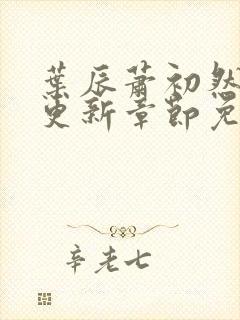 葉辰蕭初然
更新章節免
辛老七